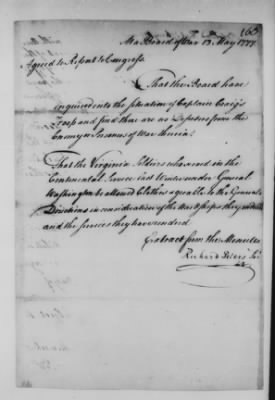 165
At a Board of War 13 May 1777.
Agreed to Report to Congress
That the Board have
enquired into the situation of Captain Craig's
Troop and find there are no Deserters from the
Enemy or Prisoners of War therein:
That the Virginia Soldiers who served in the
Continental Service last Winter under General
Washington be allowed Clothes agreable to the General's
Directions in consideration of the Hardships they
and the services they have rendered.
Extract from the Minutes
Richard Peters Sec